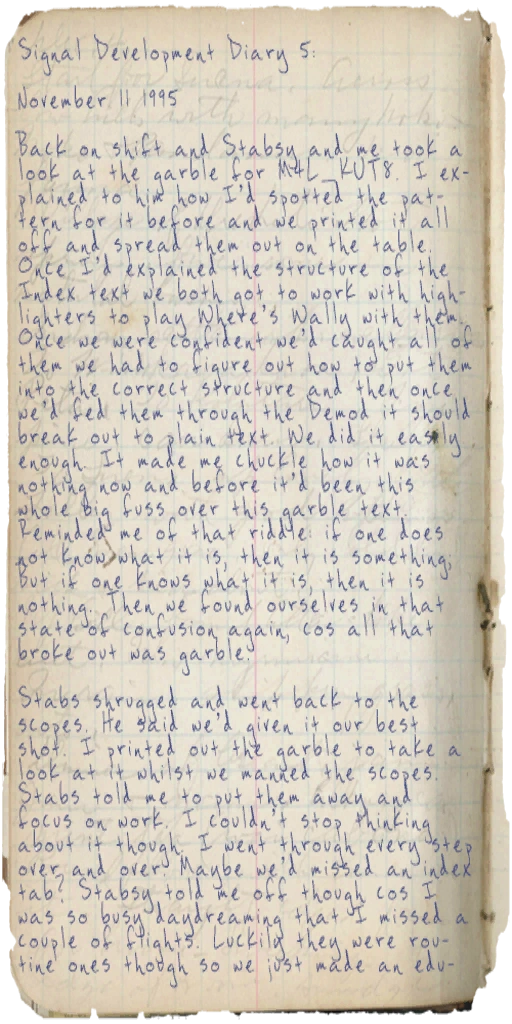 Signal Development Diary 5:
November 11 1995
Back on shift and Stabsy and me took a
look at the garble for M4L_KUT8. I ex-
plained to him how I'd spotted the pat-
tern for it before and we printed it all
off and spread them out on the table.
Once I'd explained the structure of the
Index text we both got to work with high-
lighters to play Where's Wally with them.
Once we were confident we'd caught all of
them we had to figure out how to put them
into the correct structure and then once
we'd fed them through the Demod it should
break out to plain text. We did it easily
enough. It made me chuckle how it was
nothing now and before it'd been this
whole big fuss over this garble text.
Reminded me of that riddle: if one does
not know what it is, then it is something,
but if one knows what it is, then it is
nothing. Then we found ourselves in that
state of confusion again, cos all that
broke out was garble.
Stabs shrugged and went back to the
scopes. He said we'd given it our best
shot. I printed out the garble to take a
look at it whilst we manned the scopes.
Stabs told me to put them away and
focus on work. I couldn't stop thinking
about it though. I went through every step
over and over. Maybe we'd missed an index
tab? Stabsy told me off though cos I
was so busy daydreaming that I missed a
couple of flights. Luckily they were rou-
tine ones though so we just made an edu-